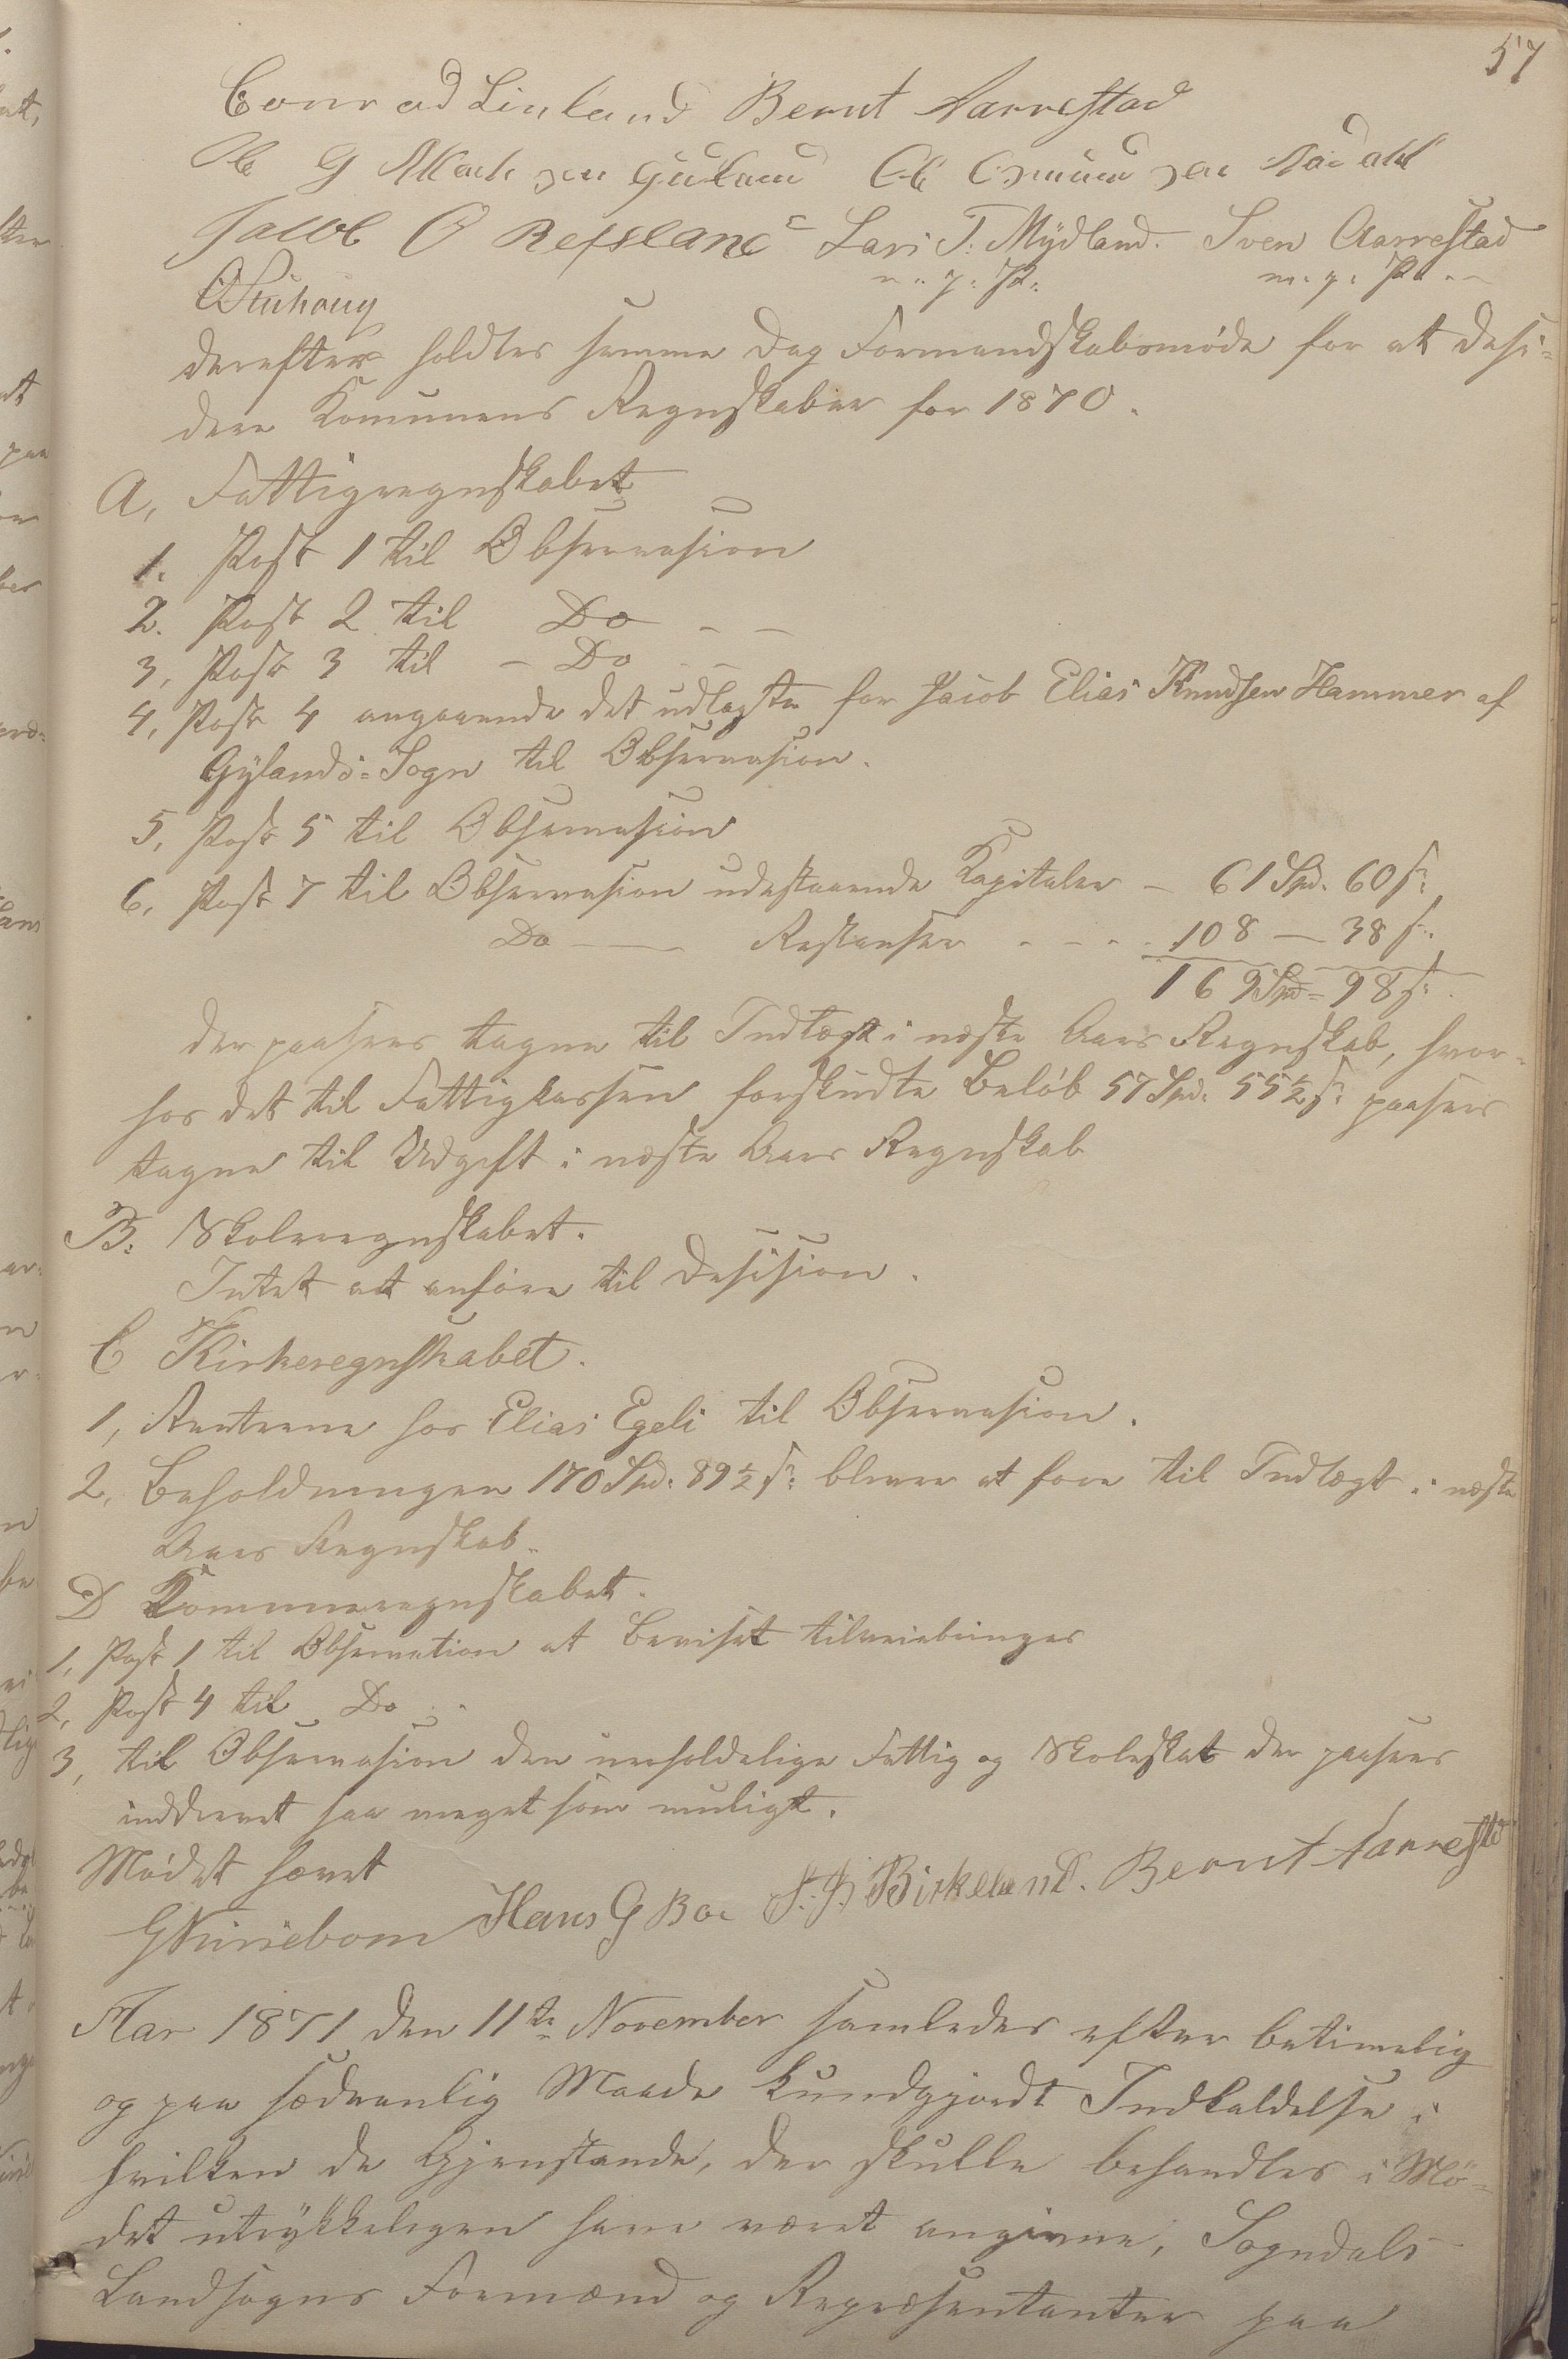 57
Conrad Linland Bernt Aarrestad
Ole G
Jacob O Refsland Lars T. Mydland. Sven Aarrestad
m. p. P. m. p. P.
OStuhoug
derefter holdtes samme Dag Formandskabsmøde for at desi-
dere Komunens Regnskaber for 1870.
A, Fattigregnskabet
1. Post 1 til Observasion
2. Post 2 til Do - -
3, Post 3 til - Do - -
4, Post 4 angaaende det udlagte for Jacob Elias Knudsen Hammer af
Gylands-Sogn til Observasion.
5, Post 5 til Observasion
6, Post 7 til Observasion udestaaende Kapitaler - 61 Spd. 60 s:
Do — Restanser - - - 108 — 38 s:
169 Spd - 98 s:
der paasees tagne til Indtægt i næste Aars Regnskab, hvor-
hos det til Fattigkassen forskudte Beløb 57 Spd. 55½ s: paasees
tagne til Udgift i næste Aars Regnskab
B: Skoleregnskabet.
Intet at anføre til Desision.
C Kirkeregnskabet.
1, Renterne hos Elias Egeli til Observasion.
2, Beholdningen 170 Spd. 89½ s: bliver at føre til Indtægt i næste
Aars Regnskab.
D Kommuneregnskabet.
1, Post 1 til Observation at Beviset tilveiebringes
2, Post 4 til Do -
3, til Observasion den uerholdelige Fattig og Skoleskat der paasees
inddrevet saa meget som muligt.
Mødet hævet
Hans G Boe Birkeland. Bernt Aarrestad
Aar 1871 den 11te November samledes efter betimelig
og paa sædvanlig Maade kundgjordt Indkaldelse i
hvilken de Gjenstande, der skulle behandles i Mø-
det utrykkeligen have været angivne, Sogndals
Landsogns Formænd og Repræsentanter paa